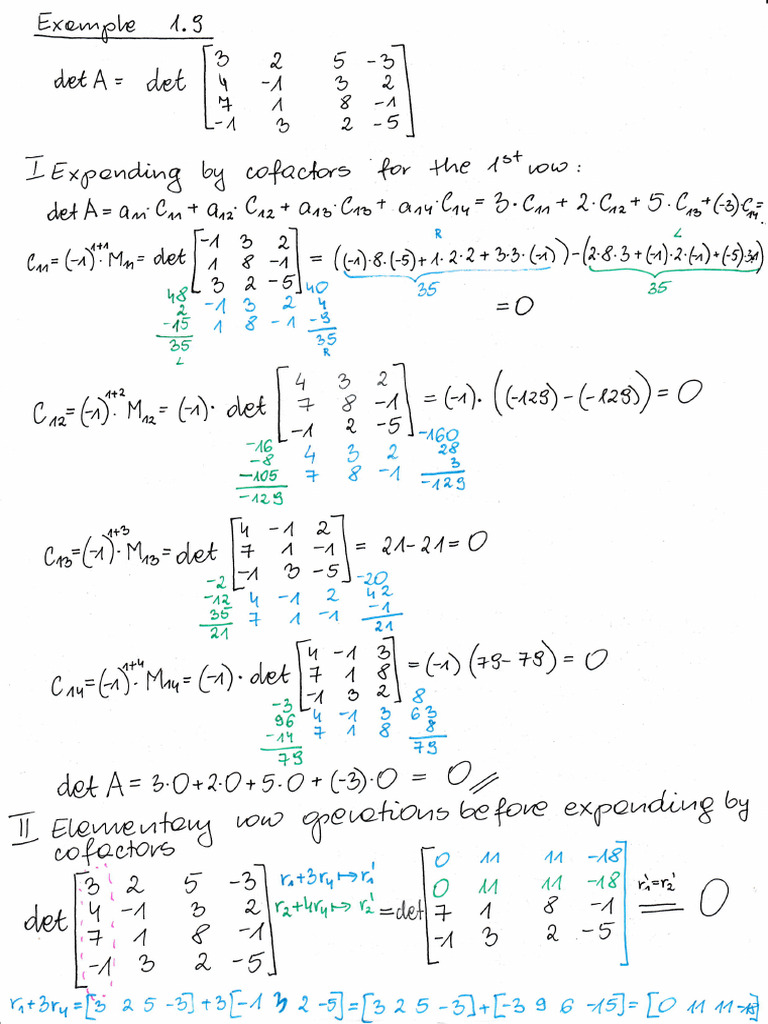 Example 1.9
det A = det [ 3 2 5 -3
4 -1 3 2
7 1 8 -1
-1 3 2 -5 ]
I Expanding by cofactors for the 1st row:
det A = a11·C11 + a12·C12 + a13·C13 + a14·C14 = 3·C11 + 2·C12 + 5·C13 + (-3)·C14 =
C11 = (-1)^1+1 · M11 = det [ -1 3 2
1 8 -1
3 2 -5 ] = ((-1)·8·(-5) + 1·2·2 + 3·3·(-1)) - (2·8·3 + (-1)·2·(-1) + (-5)·3·1)
R L
35 35
= 0
48 40
2 -1 3 2 4
-15 1 8 -1 -9
35 35
L R
C12 = (-1)^1+2 · M12 = (-1) · det [ 4 3 2
7 8 -1
-1 2 -5 ] = (-1) · ((-129) - (-129)) = 0
-16 -160
-8 4 3 2 28
-105 7 8 -1 3
-129 -129
C13 = (-1)^1+3 · M13 = det [ 4 -1 2
7 1 -1
-1 3 -5 ] = 21 - 21 = 0
-2 -20
-12 4 -1 2 42
35 7 1 -1 -1
21 21
C14 = (-1)^1+4 · M14 = (-1) · det [ 4 -1 3
7 1 8
-1 3 2 ] = (-1) (79 - 79) = 0
-3 8
96 4 -1 3 63
-14 7 1 8 8
79 79
det A = 3·0 + 2·0 + 5·0 + (-3)·0 = 0
II Elementary row operations before expanding by
cofactors
det [ 3 2 5 -3
4 -1 3 2
7 1 8 -1
-1 3 2 -5 ]
r1+3r4 ↦ r1'
r2+4r4 ↦ r2'
= det [ 0 11 11 -18
0 11 11 -18
7 1 8 -1
-1 3 2 -5 ] r1'=r2' = 0
r1+3r4 = [3 2 5 -3] + 3[-1 3 2 -5] = [3 2 5 -3] + [-3 9 6 -15] = [0 11 11 -18]